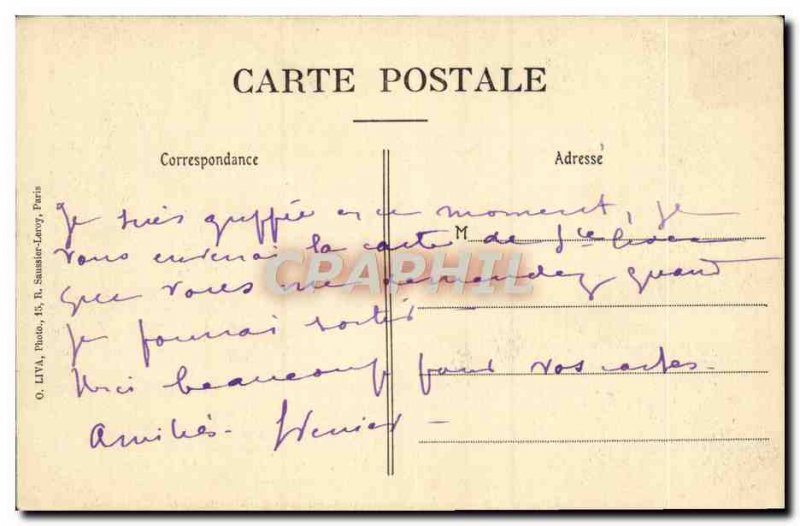 CARTE POSTALE
Correspondance
Adresse
M
Je suis greffée en ce moment, je
vous enverrai la carte de Ste
que vous me demandez quand
je pourrai sortir
Merci beaucoup pour vos cartes.
Amitiés.
CPRAPHIL
O. LIVA, Photo., 15, R. Saussier-Leroy, Paris